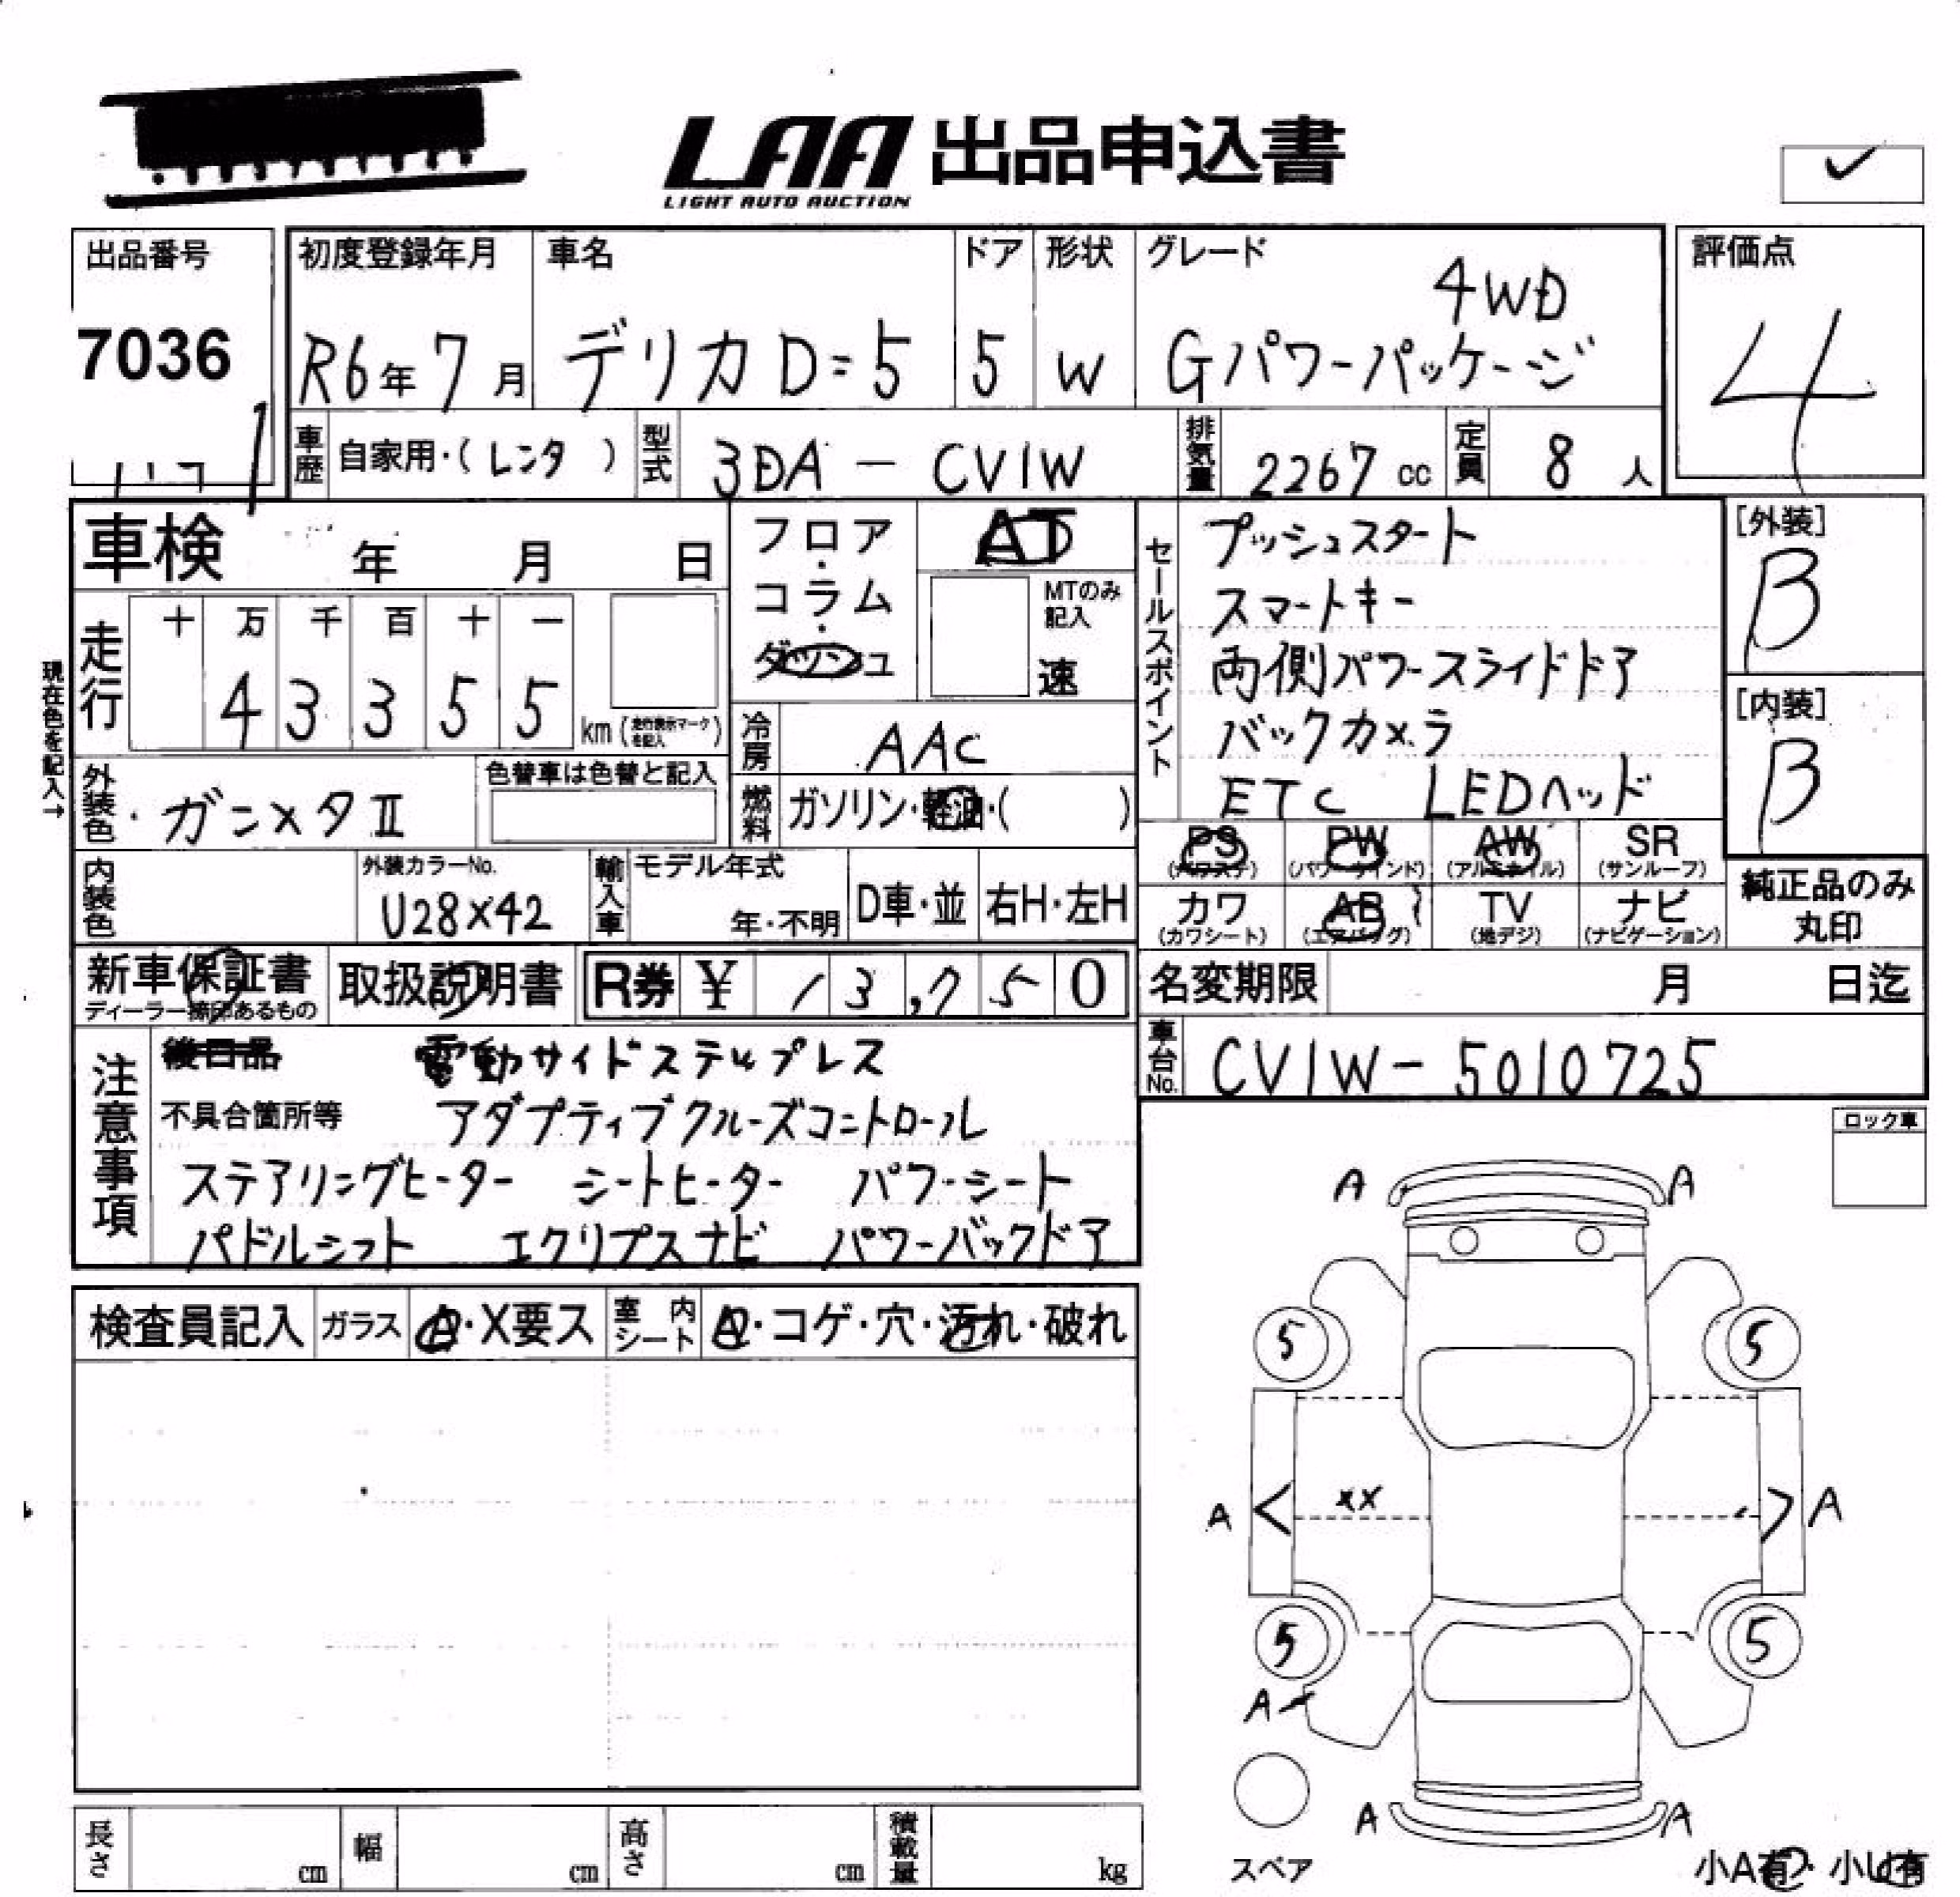 LAA 出品申込書
LIGHT AUTO AUCTION
✓
出品番号
7036
初度登録年月
R6年 7月
車名
デリカD=5
ドア
5
形状
W
グレード
4WD
Gパワーパッケージ
評価点
4
車歴 自家用・(レンタ)
型式 3DA - CV1W
排気量 2267 cc
定員 8 人
車検 年 月 日
フロア・コラム・ダッシュ
AT
MTのみ記入
速
走行
十 万 千 百 十 一
4 3 3 5 5
km(走行表示マークを記入)
現在色を記入→
冷房 AAC
外装色 ・ガンメタⅡ
色替車は色替と記入
燃料 ガソリン・軽油・( )
内装色
外装カラーNo.
U28×42
輸入車
モデル年式
年・不明
D車・並
右H・左H
セールスポイント
プッシュスタート
スマートキー
両側パワースライドドア
バックカメラ
ETC LEDヘッド
[外装]
B
[内装]
B
PS (パワステ)
PW (パワーウインド)
AW (アルミホイル)
SR (サンルーフ)
カワ (カワシート)
AB (エアバッグ)
TV (地デジ)
ナビ (ナビゲーション)
純正品のみ
丸印
新車保証書
ディーラー捺印あるもの
取扱説明書
R券 ¥ 13,750
名変期限 月 日迄
車台No. CV1W-5010725
注意事項
後日品 電動サイドステップレス
不具合箇所等 アダプティブクルーズコントロール
ステアリングヒーター シートヒーター パワーシート
パドルシフト エクリプスナビ パワーバックドア
ロック車
検査員記入 ガラス A・X要ス 室内シート A・コゲ・穴・汚れ・破れ
A A
5 5
A < ×× > A
5 5
A
スペア
A A
小A有・小U有
長さ cm 幅 cm 高さ cm 積載量 kg